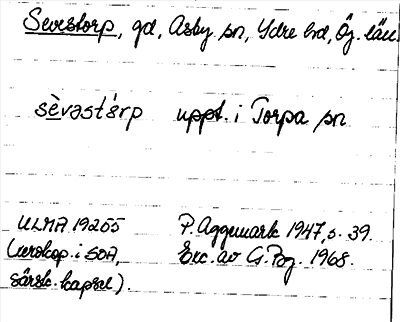 Sevestorp, gd, Asby sn, Ydre hd, Ög. län
sèvəstȧrp uppt. i Torpa sn
ULMA 19255 P. Aggemark 1947, s. 39.
(xerokop. i SOA, Exc. av G. Pog. 1968.
särsk. kapsel).